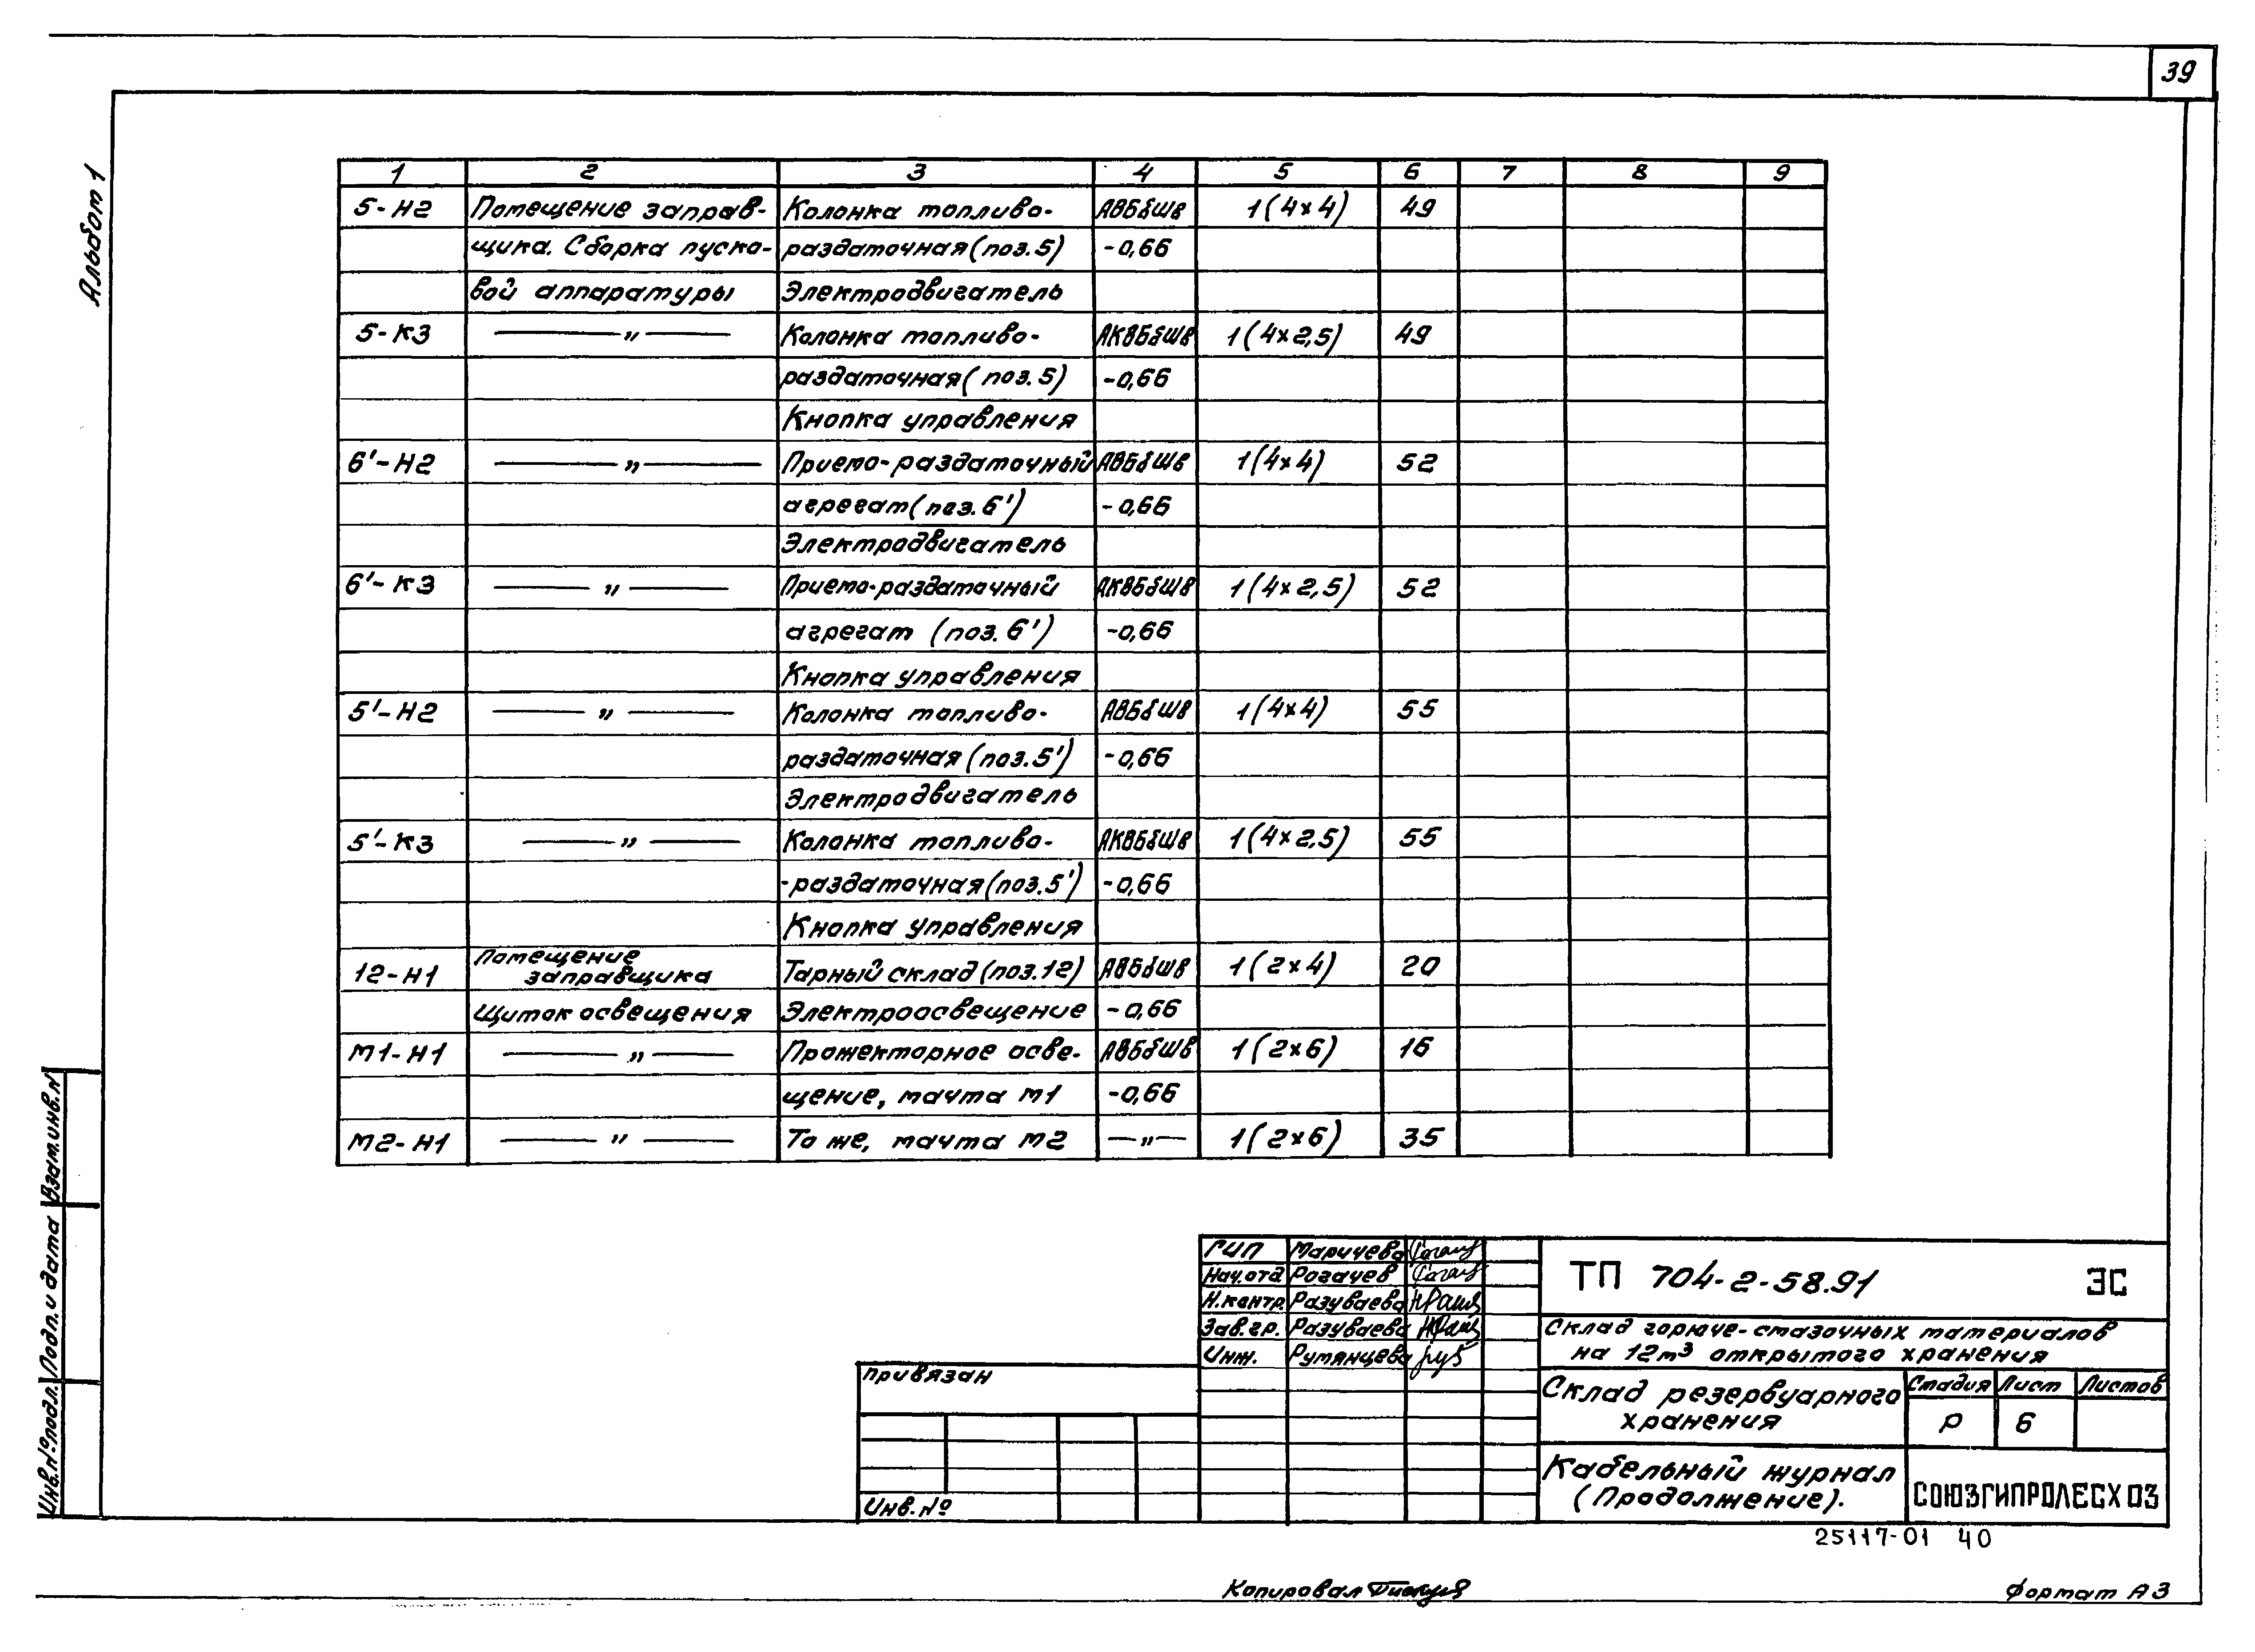 39
Альбом 1
1 2 3 4 5 6 7 8 9
5-Н2 Помещение заправ- Колонка топливо- АВБбШв 1(4×4) 49
щика. Сборка пуско- раздаточная (поз. 5) -0,66
вой аппаратуры Электродвигатель
5-К3 —〃— Колонка топливо- АКВБбШв 1(4×2,5) 49
раздаточная (поз. 5) -0,66
Кнопка управления
6'-Н2 —〃— Приемо-раздаточный АВБбШв 1(4×4) 52
агрегат (поз. 6') -0,66
Электродвигатель
6'-К3 —〃— Приемо-раздаточный АКВБбШв 1(4×2,5) 52
агрегат (поз. 6') -0,66
Кнопка управления
5'-Н2 —〃— Колонка топливо- АВБбШв 1(4×4) 55
раздаточная (поз. 5') -0,66
Электродвигатель
5'-К3 —〃— Колонка топливо- АКВБбШв 1(4×2,5) 55
-раздаточная (поз. 5') -0,66
Кнопка управления
12-Н1 Помещение заправщика Тарный склад (поз. 12) АВБбШв 1(2×4) 20
Щиток освещения Электроосвещение -0,66
М1-Н1 —〃— Прожекторное осве- АВБбШв 1(2×6) 16
щение, мачта М1 -0,66
М2-Н1 —〃— То же, мачта М2 —〃— 1(2×6) 35
Взам.инв.N
Подп. и дата
Инв.№подл.
ГИП Маричева
Нач.отд Рогачев
Н.контр. Разуваева
Зав.гр. Разуваева
Инж. Румянцева
привязан
Инв.№
ТП 704-2-58.91 ЭС
Склад горюче-смазочных материалов
на 12м³ открытого хранения
Склад резервуарного
хранения
Стадия Лист Листов
Р 6
Кабельный журнал
(Продолжение).
СОЮЗГИПРОЛЕСХОЗ
25117-01 40
Копировал
Формат А3